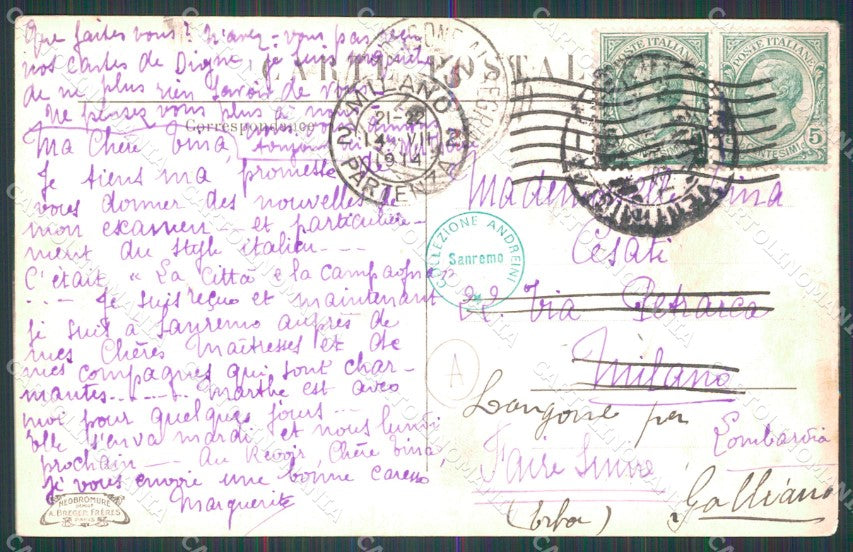 Que faites vous? N'avez-vous pas reçu
nos cartes de Digne, je suis
de ne plus rien savoir de vous
Ne pensez vous plus à nous
CARTE POSTALE
Correspondance
Ma Chère Gina,
toujours
Je tiens ma promesse de
vous donner des nouvelles de
mon examen - et particulière-
ment du style italien....
C'était "La Città e la campagna"
.... Je suis reçue et maintenant
je suis à Sanremo auprès de
mes Chères Maîtresses et de
mes compagnes qui sont char-
mantes..... Marthe est avec
moi pour quelques jours...
elle s'en va mardi et nous lundi
prochain - Au Revoir, Chère Gina,
Je vous envoie une bonne caresse
Marguerite
NEOBROMURE
A. BREGER FRÈRES
PARIS
MILANO
21-22
14 VII
1914
PARTENZA
2
2
POSTE ITALIANE
POSTE ITALIANE
5
CENTESIMI
Mademoiselle Gina
Cesati
Via Petrarca
Milano
Langone per
Lombardia
Faire Suivre
(Erba)
Galliano
COLLEZIONE ANDREINI
Sanremo
A
CARTOLINOMANIA